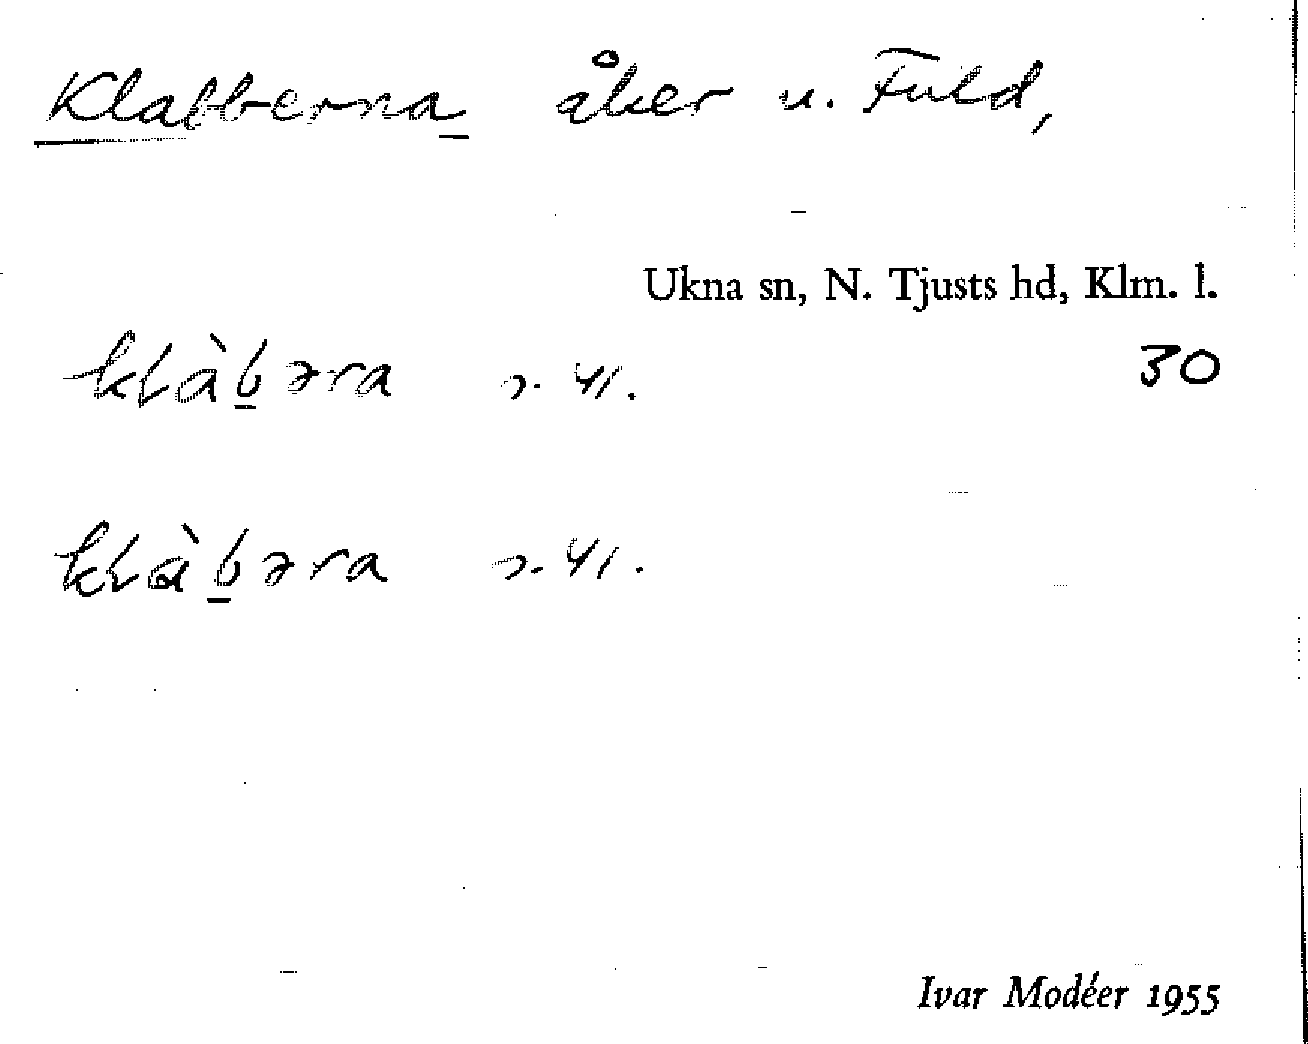 Klabberna åker u. Fuld,
Ukna sn, N. Tjusts hd, Klm. l.
klàb̲əra 30
klàb̲əra
Ivar Modéer 1955